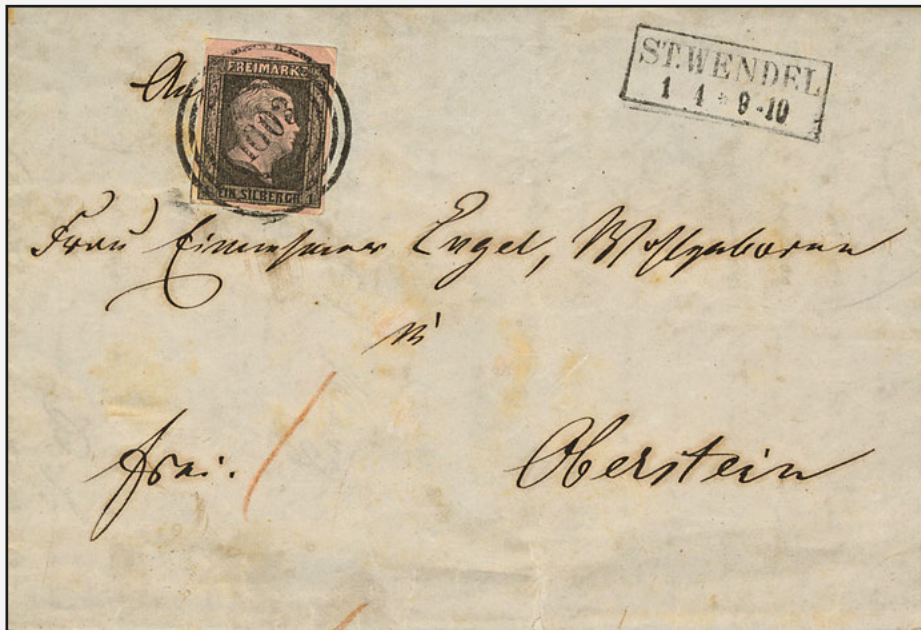 An
FREIMARKE
1003
EIN SILBERGR. 1
ST.WENDEL
1 4 * 9-10
Frau Einnehmer Engel, Wohlgeboren
in
frei.
Oberstein